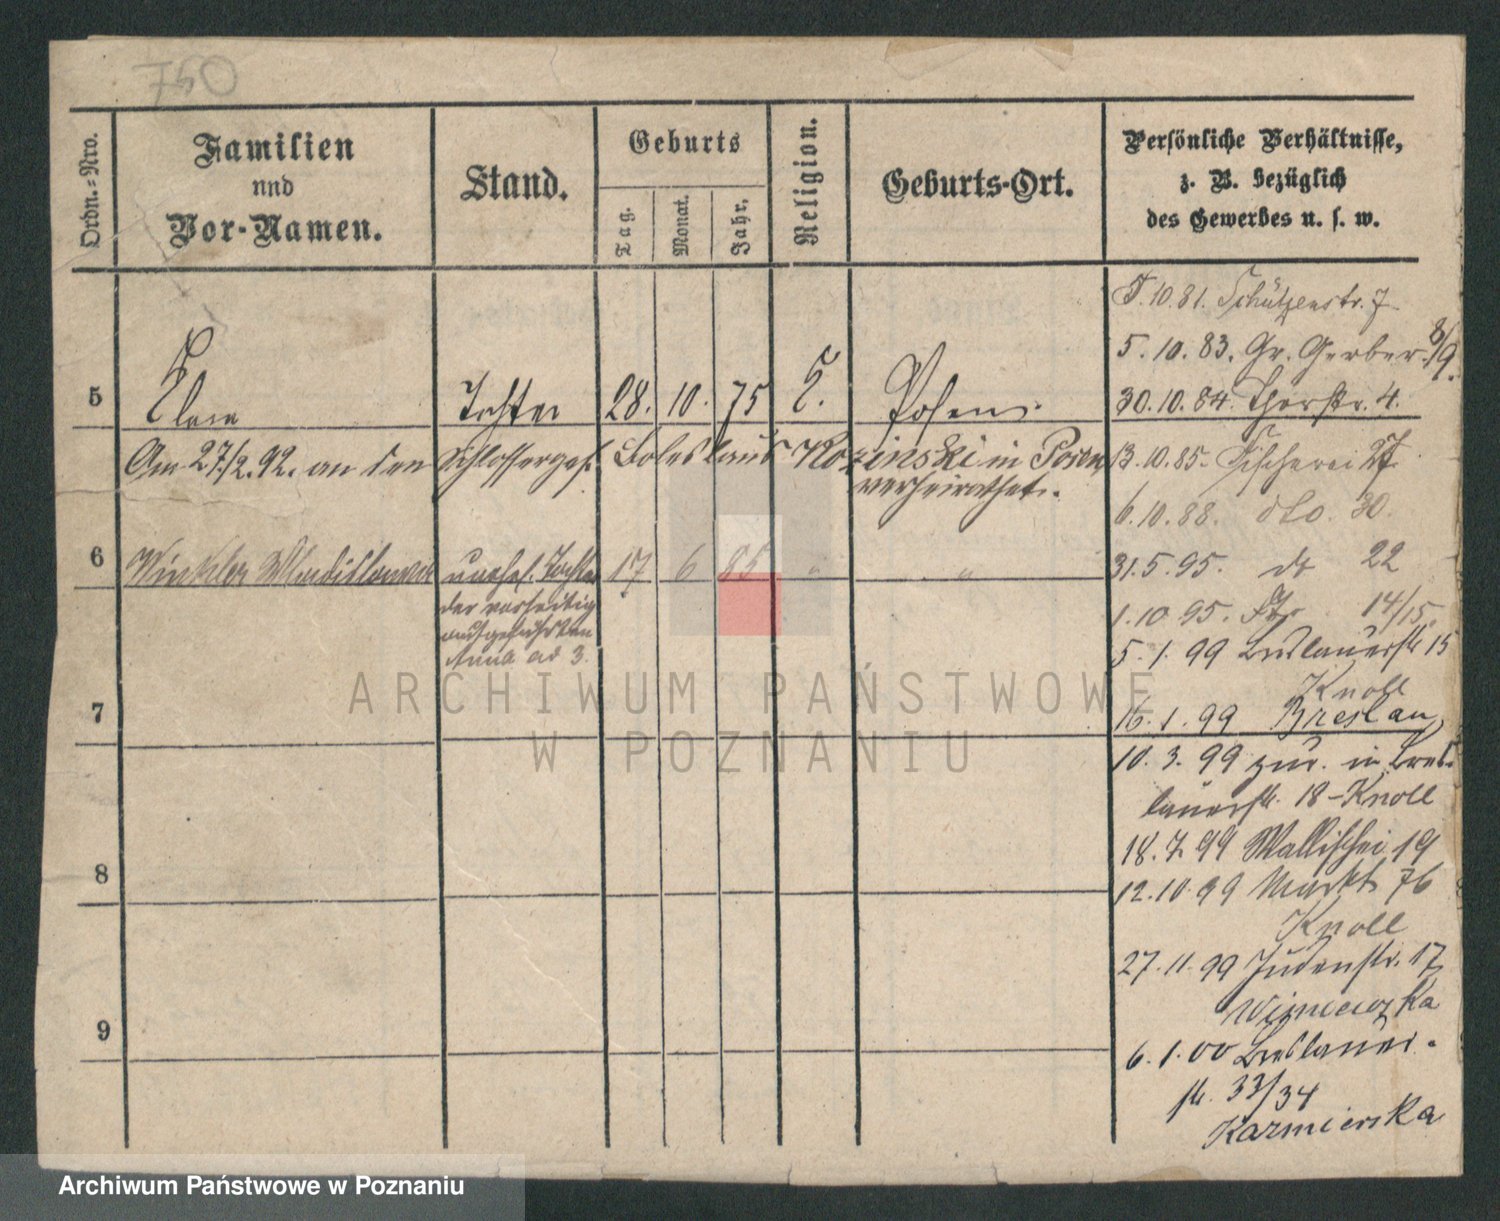 Ordn.=Nro.
Familien
und
Vor-Namen.
Stand.
Geburts
Tag.
Monat.
Jahr.
Religion.
Geburts-Ort.
Persönliche Verhältnisse,
z. B. bezüglich
des Gewerbes u. s. w.
5
Tochter
28. 10. 75
Posen.
Am 27./2. 92. an den Schlosserges. Boleslaus Kozinski in Posen
verheirathet.
6
Winkler Wladislawa
unehel. Tochter
17 6 85 " "
der vorseitig
aufgeführten
Anna ad 3.
7
8
9
10.81. Schützenstr. 7
5. 10. 83. Gr. Gerber 8/9.
30. 10. 84. Thorstr. 4.
13. 10. 85. Fischerei 27.
6. 10. 88. dto. 30.
31. 5. 95. do 22
1. 10. 95. 14/15.
5. 1. 99 Breslauerstr 15
Knoll
16. 1. 99 Breslau,
10. 3. 99 zur. in Bres-
lauerstr. 18 - Knoll
18. 7. 99 Wallischei 19
12. 10. 99 Markt 76
Knoll
27. 11. 99 Judenstr. 17
6. 1. 00 Breslauer-
str. 33/34
Kazmierska
ARCHIWUM PAŃSTWOWE
W POZNANIU
Archiwum Państwowe w Poznaniu